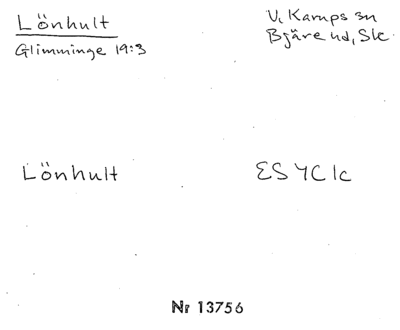 Lönhult
Glimminge 19:3
V. Karups sn
Bjäre hd, Sk.
Lönhult
ES YC 1c
Nr 13756